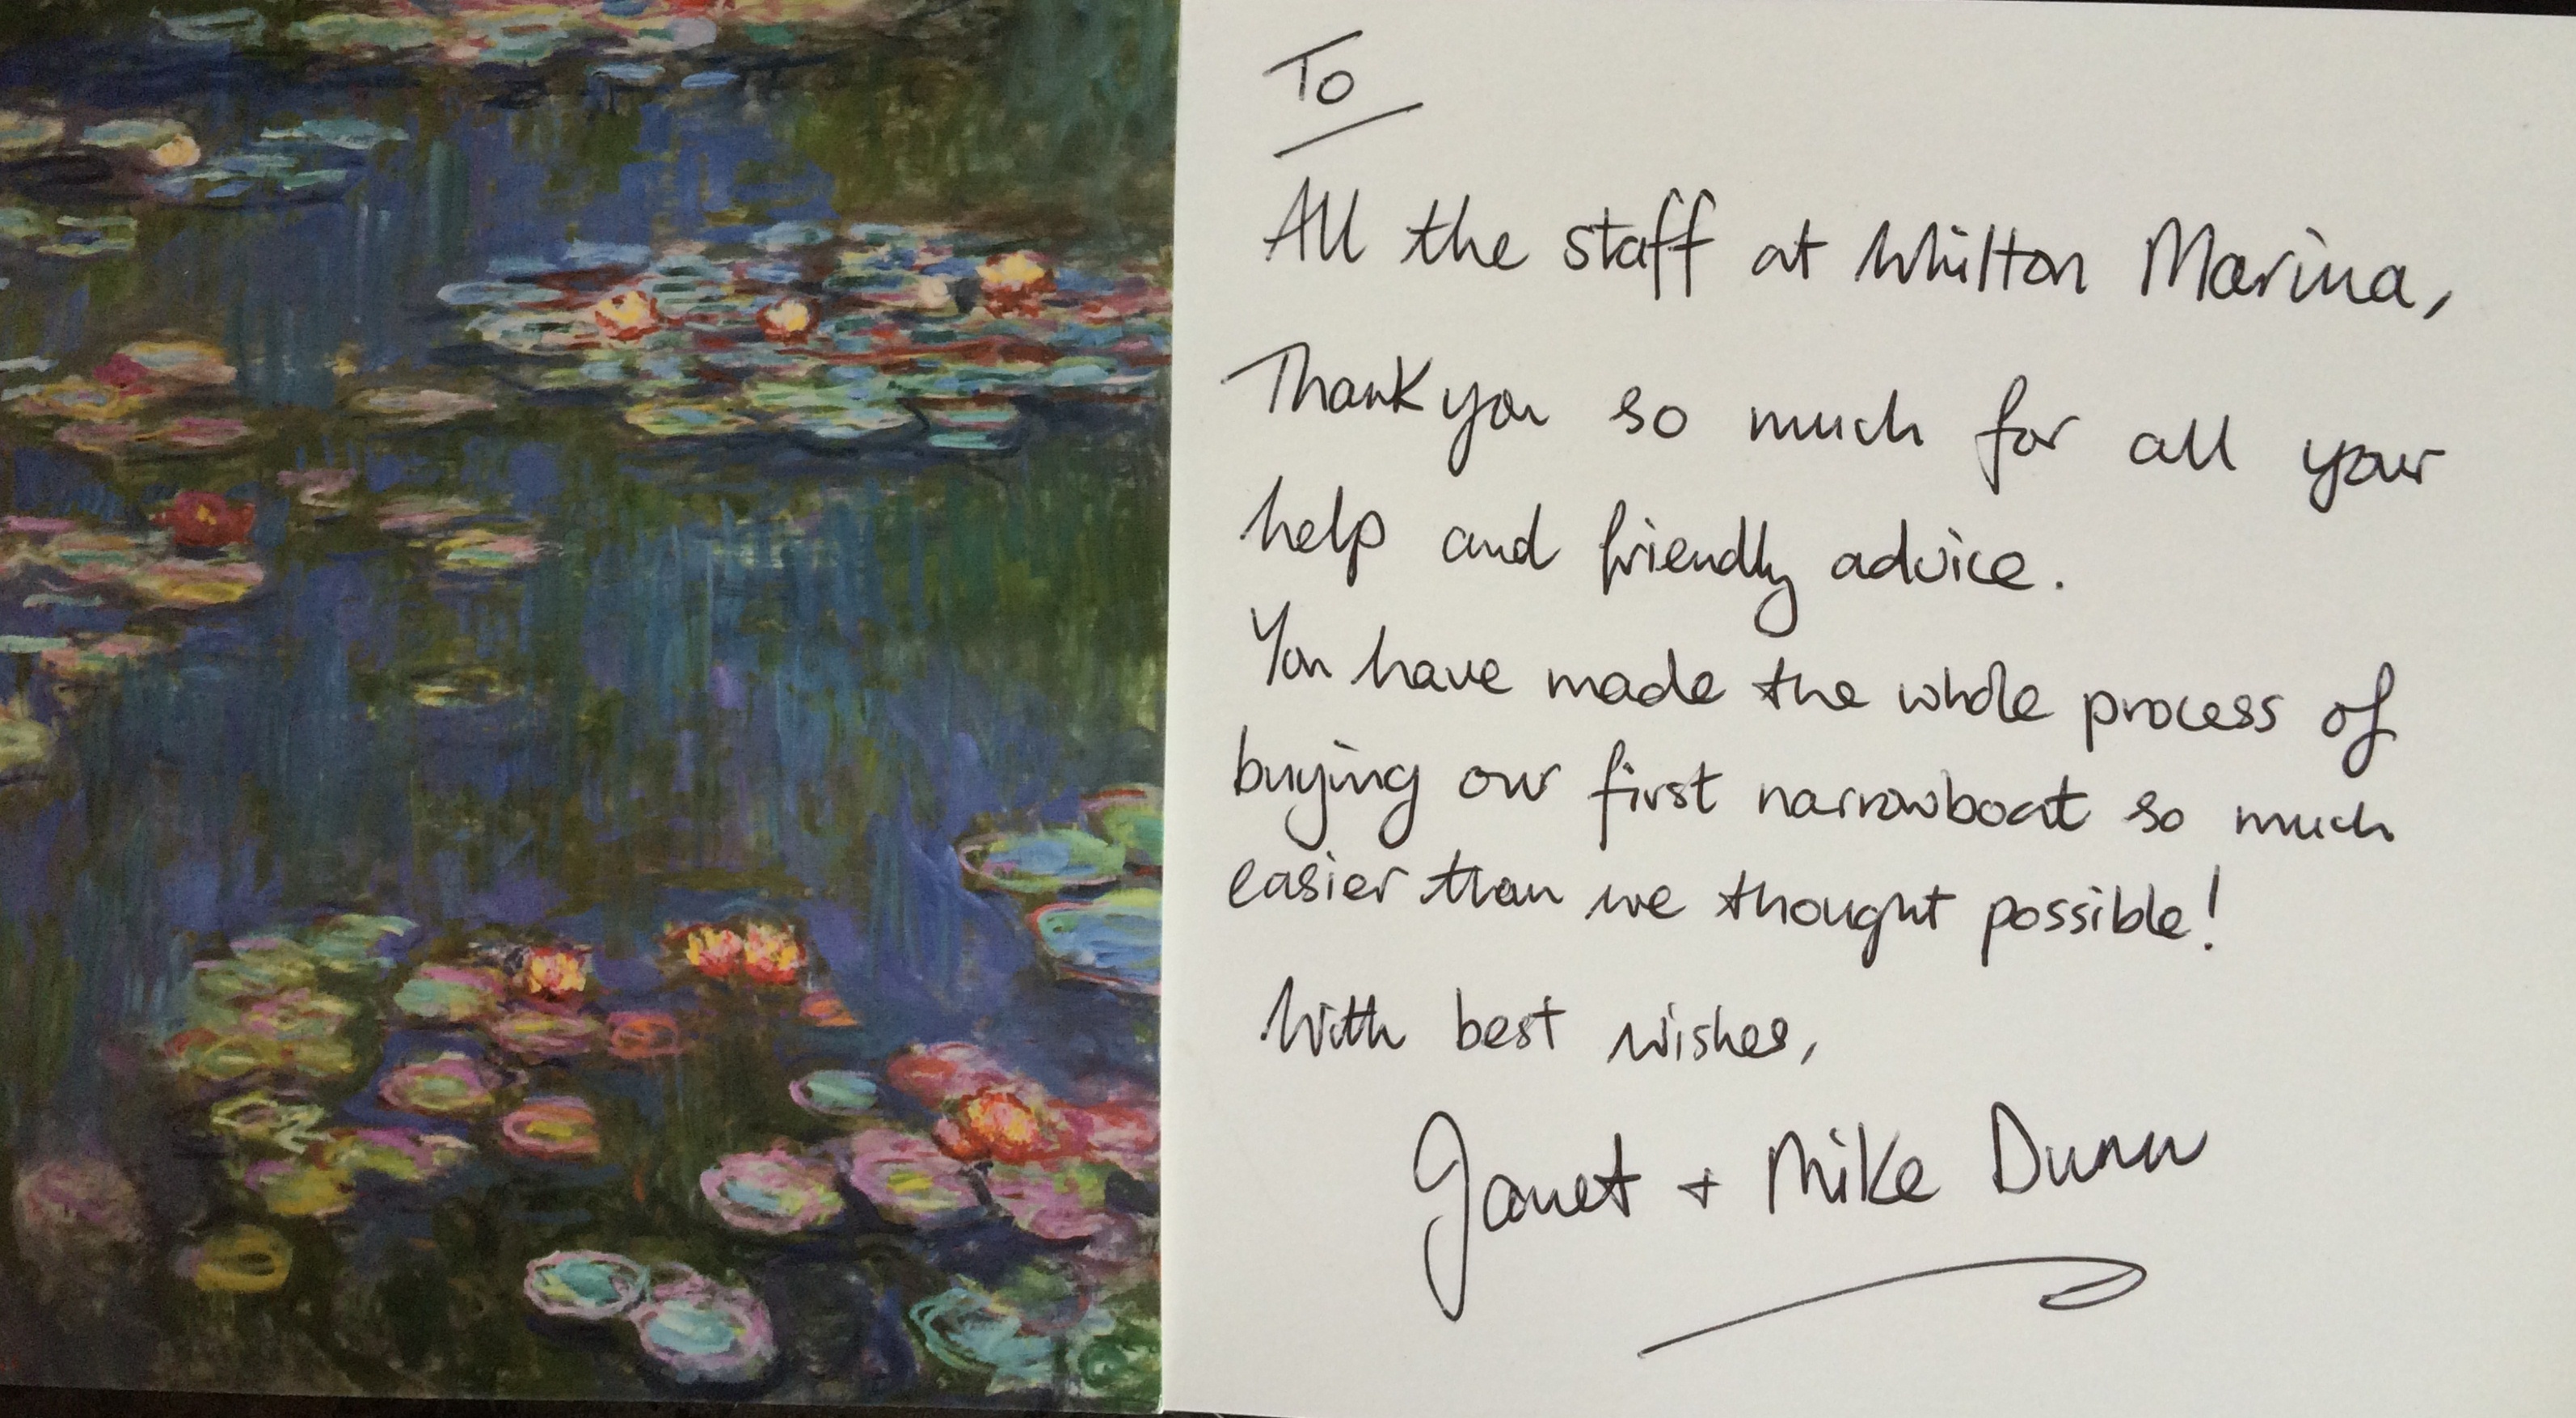 To
All the staff at Whilton Marina,
Thank you so much for all your
help and friendly advice.
You have made the whole process of
buying our first narrowboat so much
easier than we thought possible!
With best wishes,
Janet + Mike Dunn